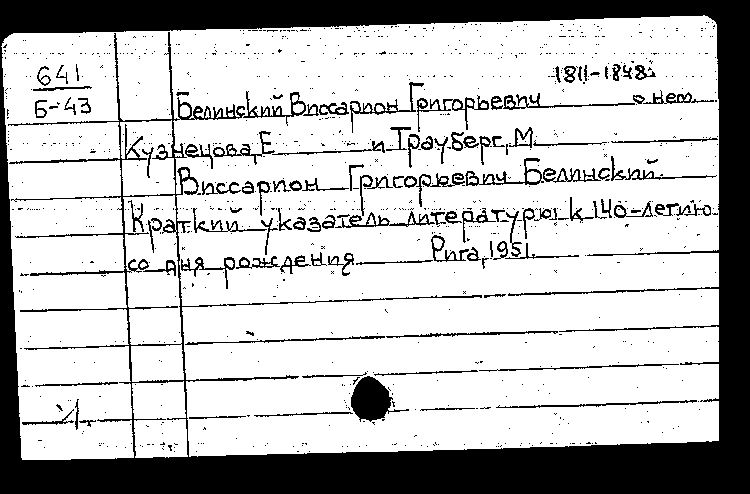 641
Б-43
1811-1848.
Белинский, Виссарион Григорьевич о нем.
Кузнецова, Е и Трауберг, М.
Виссарион Григорьевич Белинский.
Краткий указатель литературы к 140-летию
со дня рождения Рига, 1951.